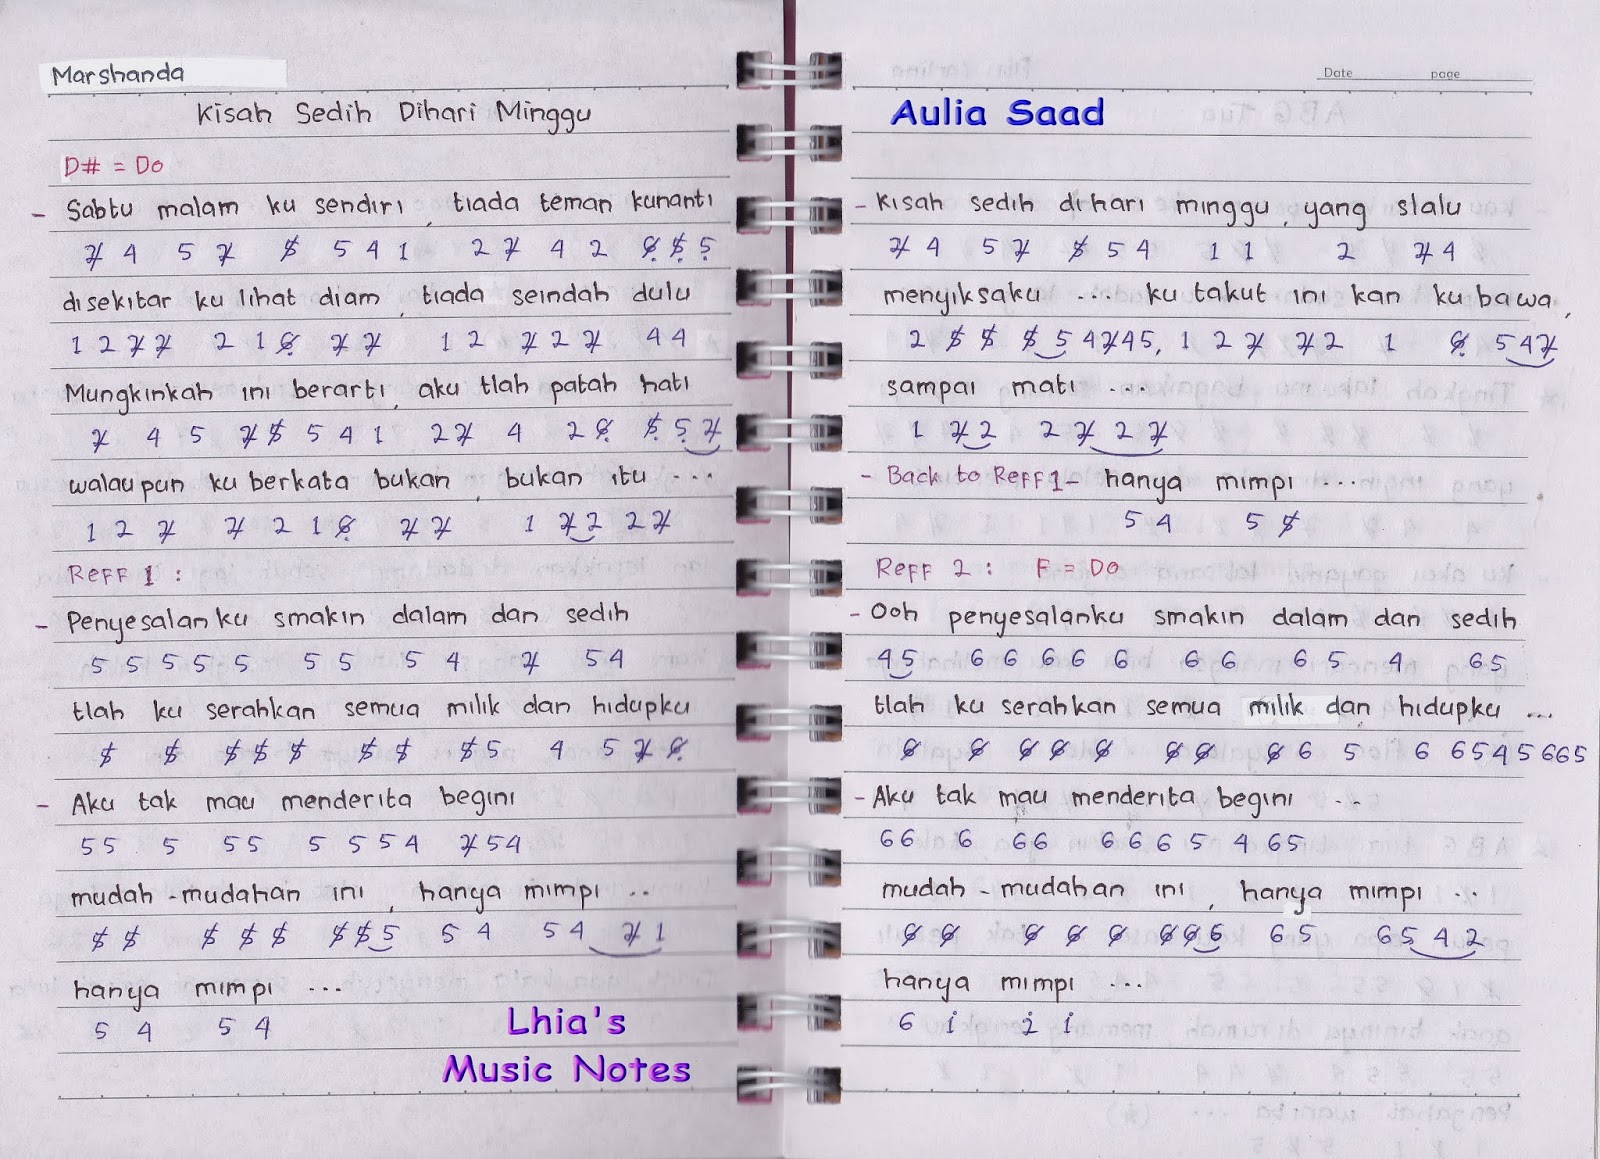 Marshanda
Kisah Sedih Dihari Minggu
D# = Do
- Sabtu malam ku sendiri, tiada teman kunanti
2̸ 4 5 2̸ 5̸ 5 4 1 2 2̸ 4 2 6̸̣ 5̸̣ 5̣
disekitar ku lihat diam, tiada seindah dulu
1 2 2̸ 2̸ 2 1 6̸̣ 2̸ 2̸ 1 2 2̸ 2 2̸ 4 4
Mungkinkah ini berarti, aku tlah patah hati
2̸ 4 5 2̸ 5̸ 5 4 1 2 2̸ 4 2 6̸̣ 5̸̣ 5̣ 2̸
walaupun ku berkata bukan, bukan itu ...
1 2 2̸ 2̸ 2 1 6̸̣ 2̸ 2̸ 1 2̸ 2 2 2̸
Reff 1 :
- Penyesalanku smakin dalam dan sedih
5 5 5 5 5 5 5 5 4 2̸ 5 4
tlah ku serahkan semua milik dan hidupku
5̸ 5̸ 5̸ 5̸ 5̸ 5̸ 5̸ 5̸ 5 4 5 2̸ 6̸̣
- Aku tak mau menderita begini
5 5 5 5 5 5 5 5 4 2̸ 5 4
mudah - mudahan ini, hanya mimpi ..
5̸ 5̸ 5̸ 5̸ 5̸ 5̸ 5̸ 5 5 4 5 4 2̸ 1
hanya mimpi ...
5 4 5 4
Lhia's
Music Notes
Date page
Aulia Saad
- Kisah sedih dihari minggu, yang slalu
2̸ 4 5 2̸ 5̸ 5 4 1 1 2 2̸ 4
menyiksaku .... ku takut ini kan ku bawa,
2 5̸ 5̸ 5̸ 5 4 2̸ 4 5, 1 2 2̸ 2̸ 2 1 6̸̣ 5 4 2̸
sampai mati ...
1 2̸ 2 2 2̸ 2 2̸
- Back to Reff 1 - hanya mimpi ...
5 4 5 5̸
Reff 2 : F = Do
- Ooh penyesalanku smakin dalam dan sedih
4 5 6 6 6 6 6 6 6 6 5 4 6 5
tlah ku serahkan semua milik dan hidupku ...
6̸ 6̸ 6̸ 6̸ 6̸ 6̸ 6̸ 6̸ 6 5 6 6 5 4 5 6 6 5
- Aku tak mau menderita begini ...
6 6 6 6 6 6 6 6 5 4 6 5
mudah - mudahan ini, hanya mimpi ...
6̸ 6̸ 6̸ 6̸ 6̸ 6̸ 6̸ 6 6 5 6 5 4 2
hanya mimpi ...
6 1̇ 2̇ 1̇